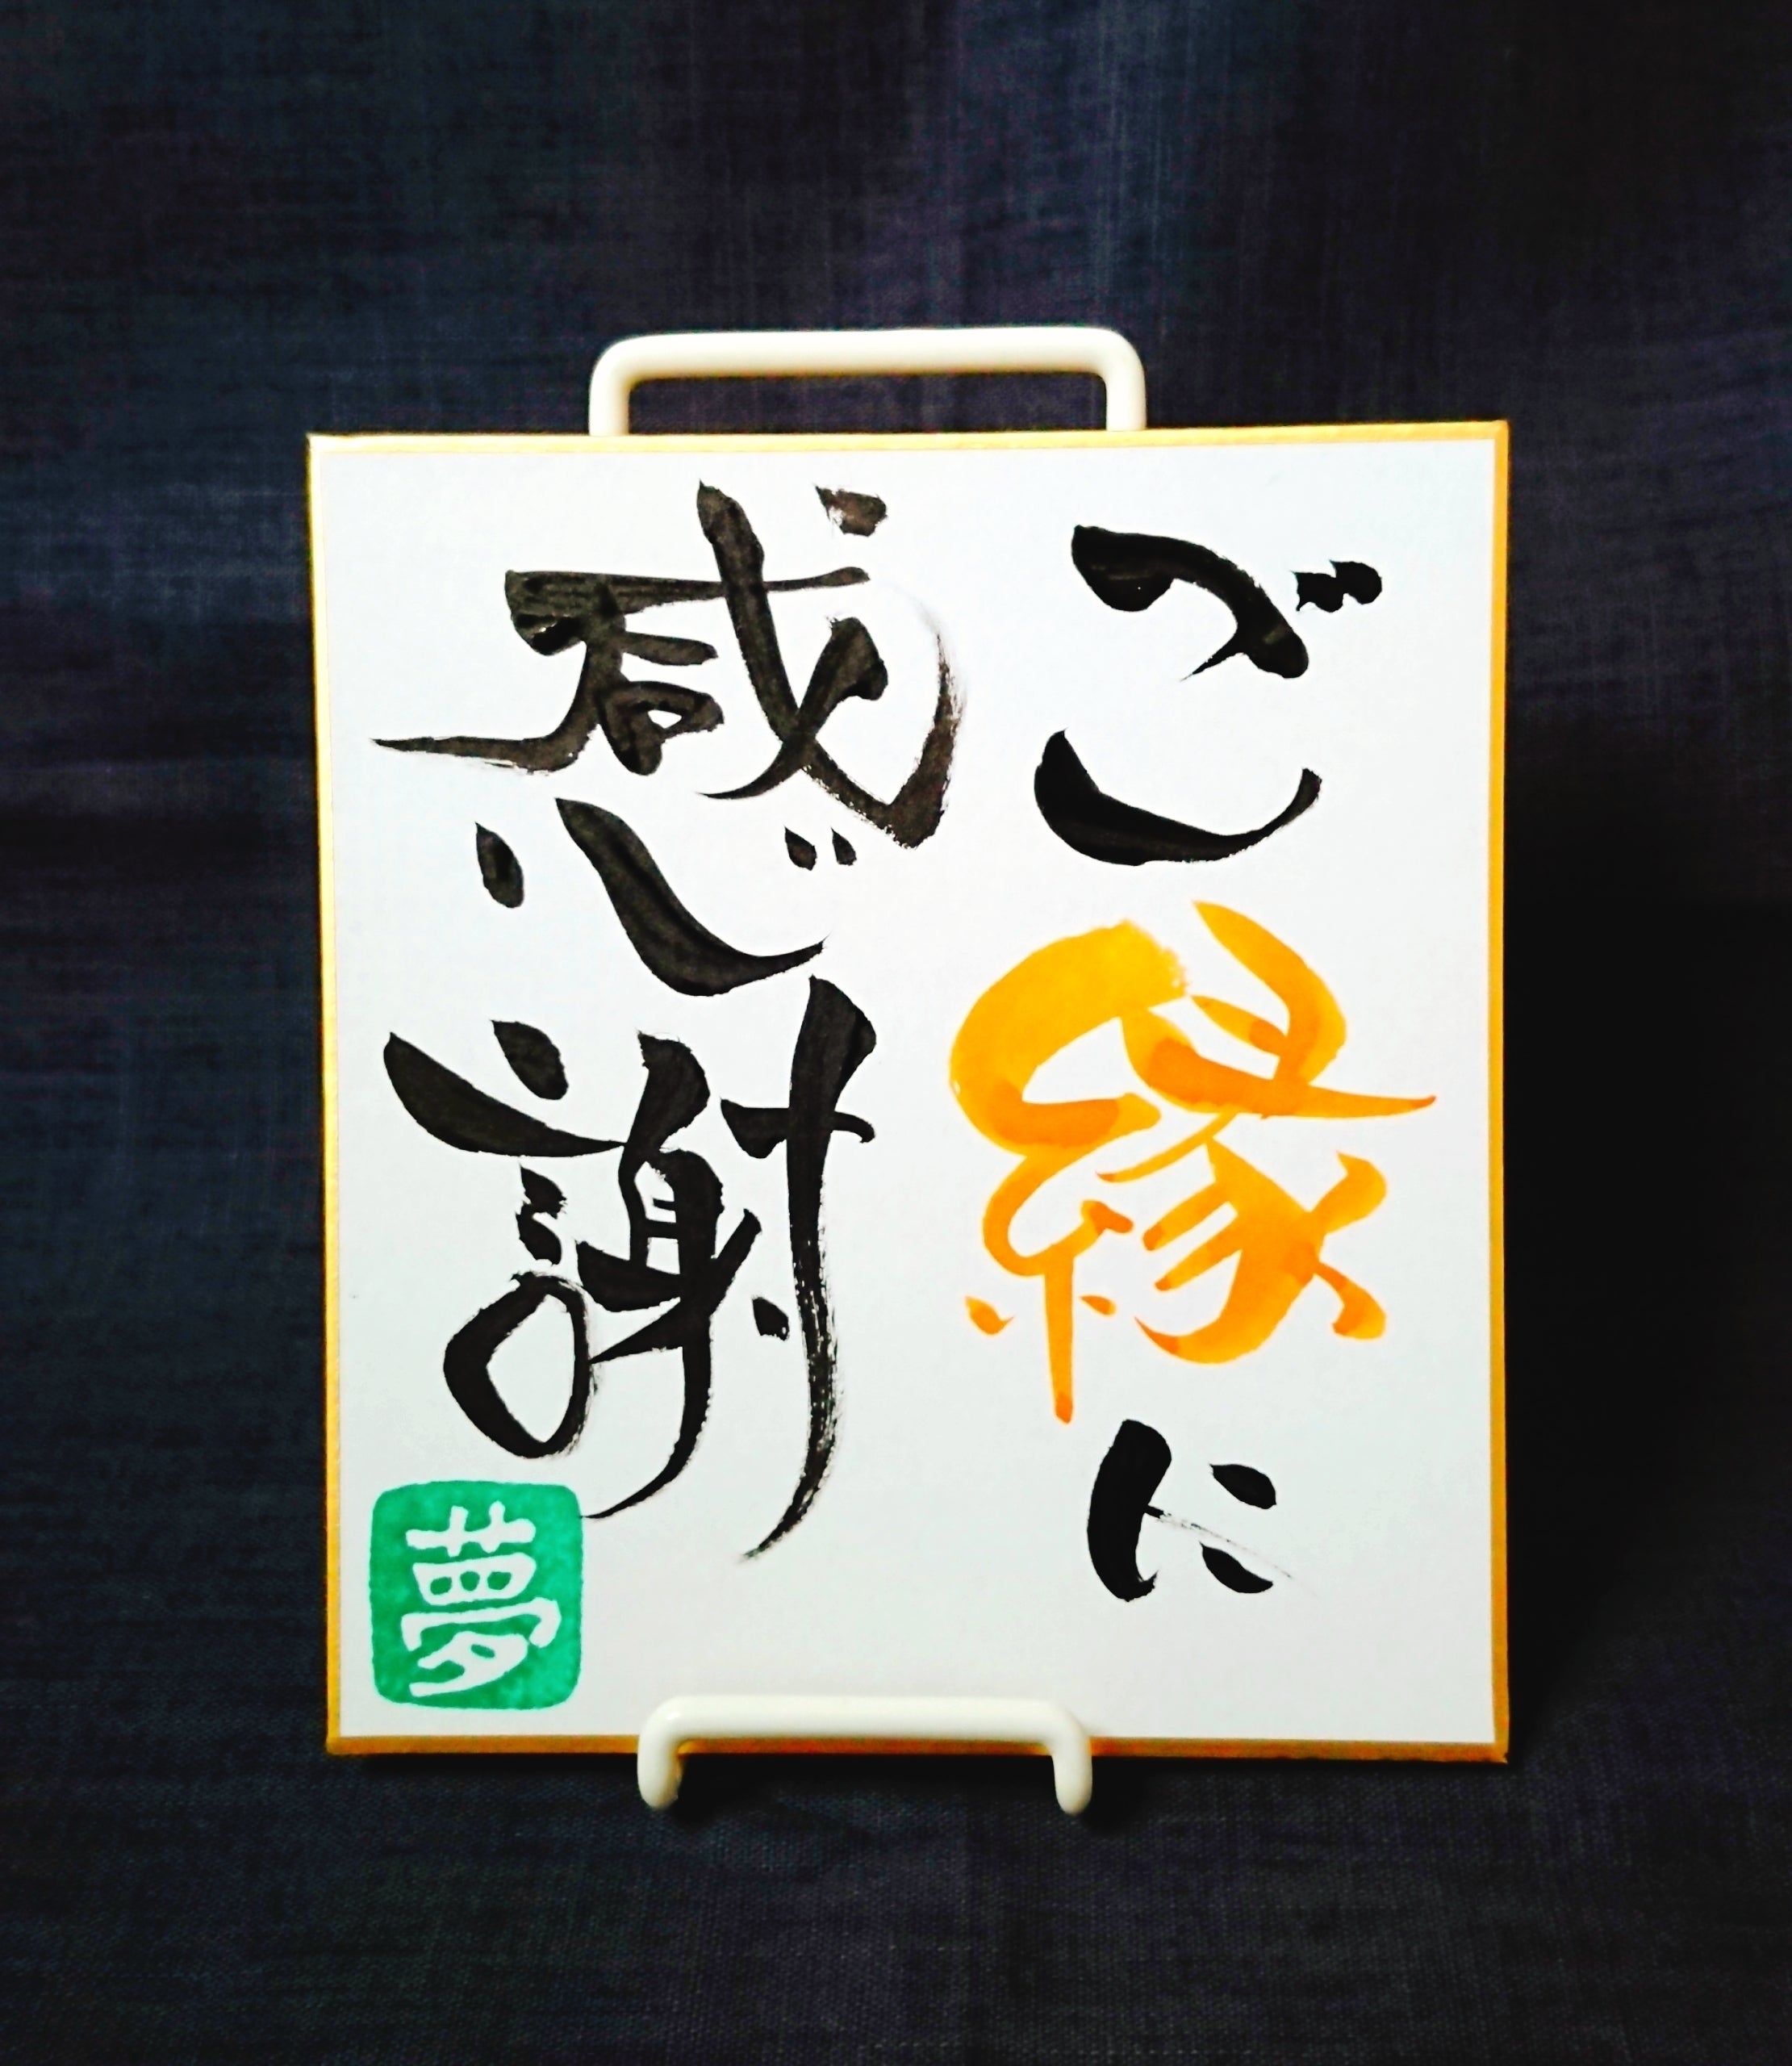 ご縁に
感謝
夢